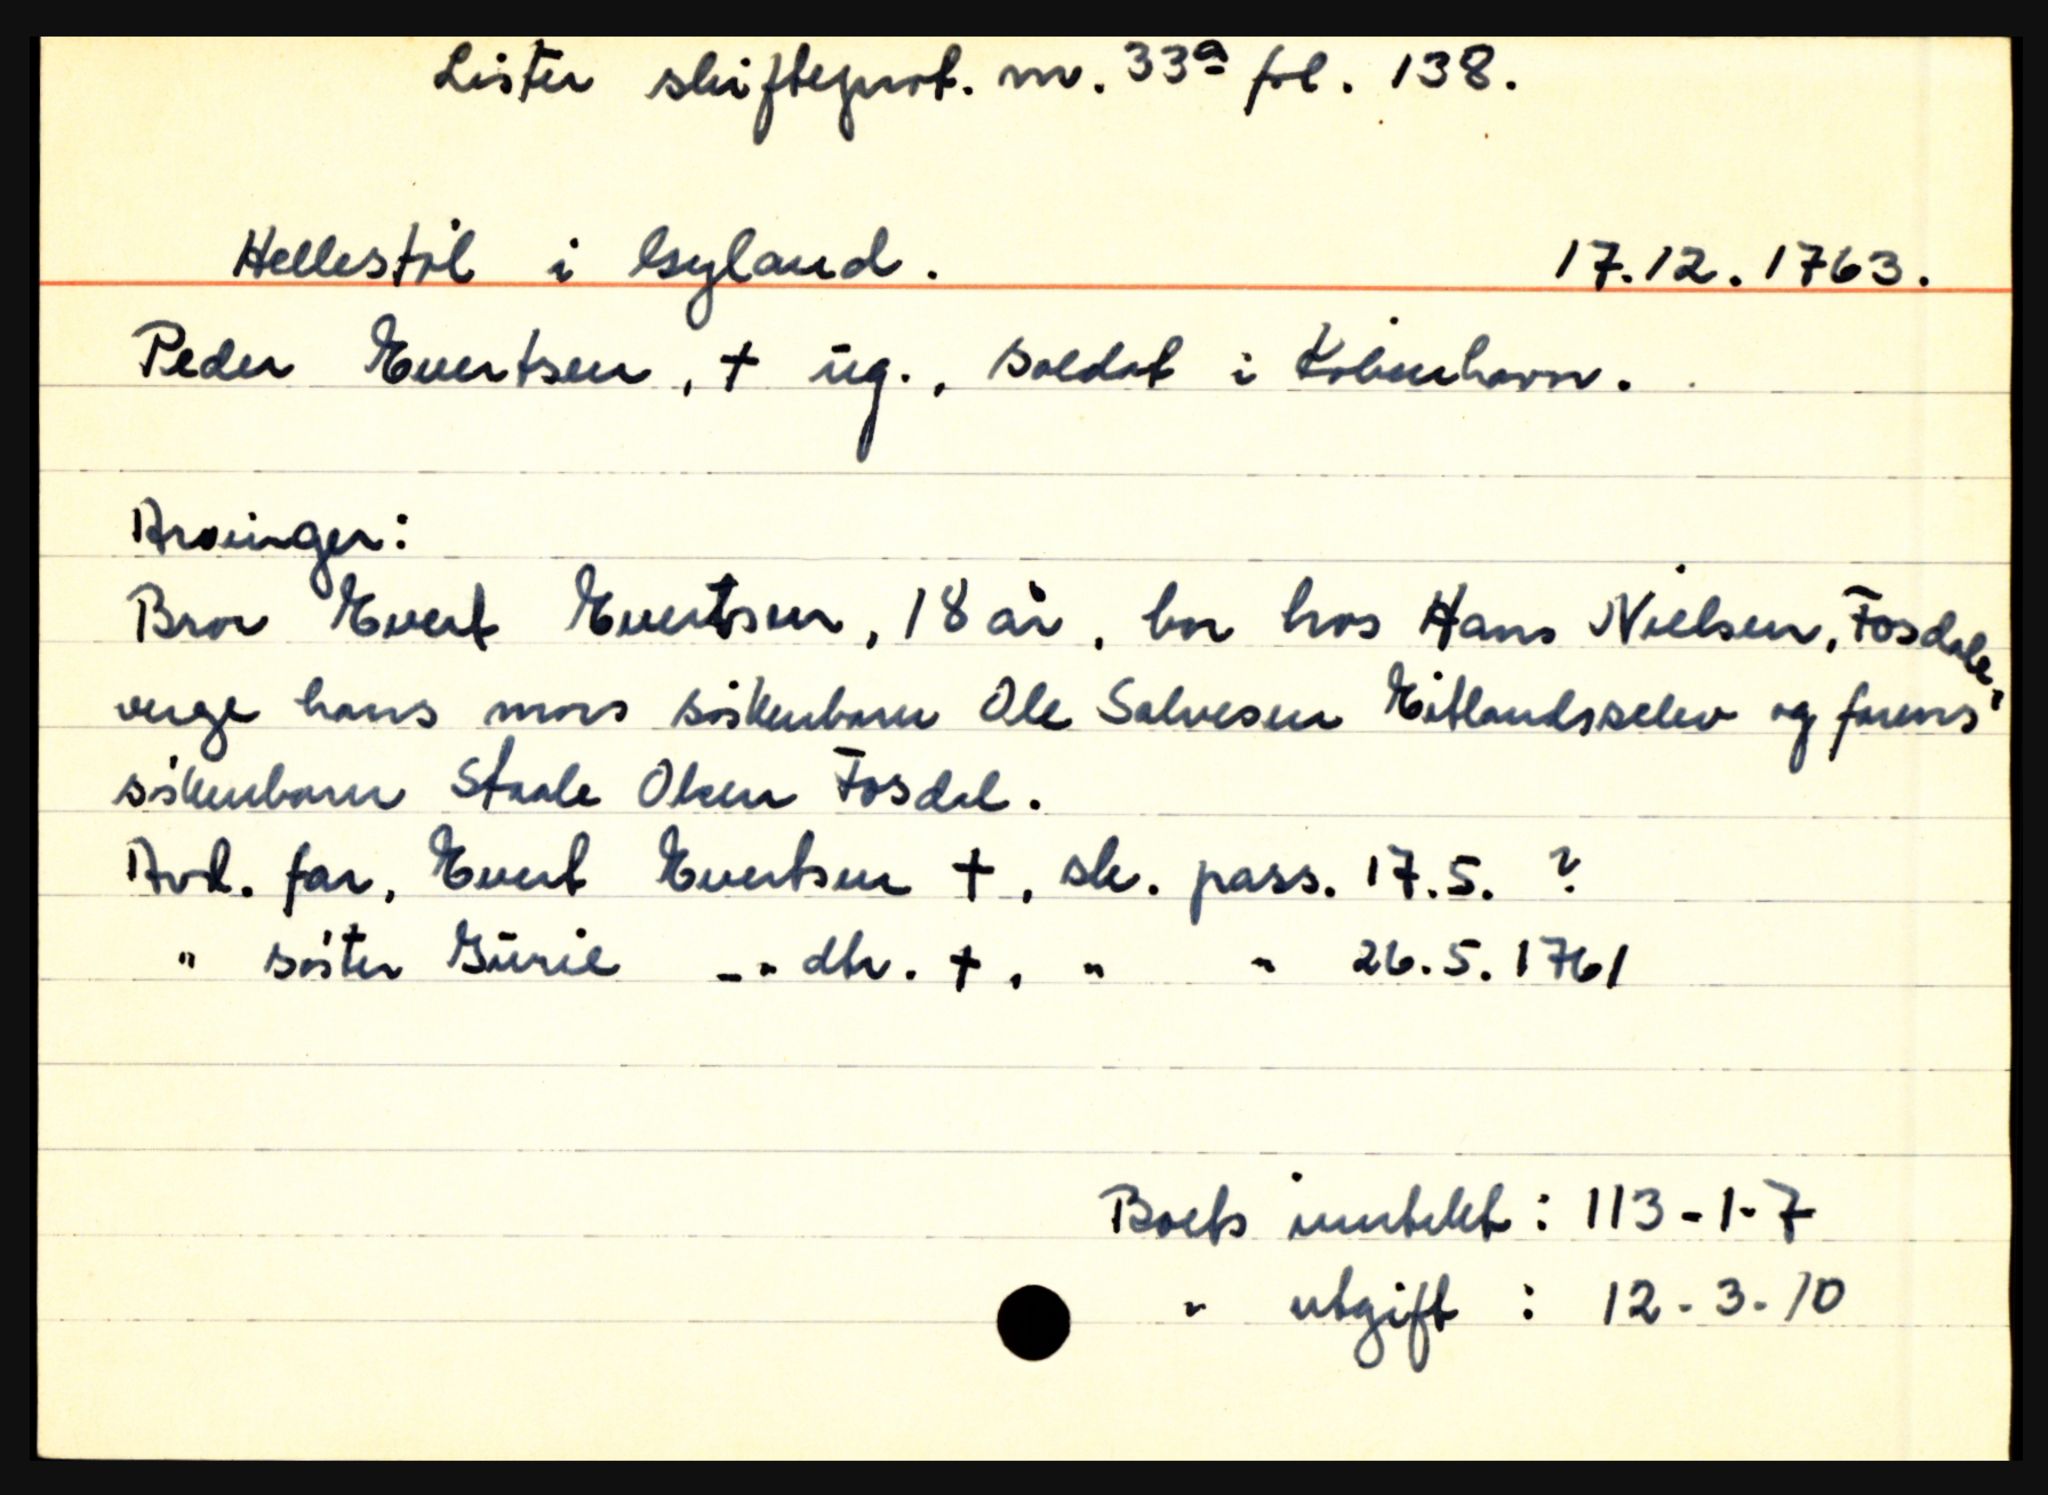 Lister skifteprot. nr. 33a fol. 138.
Hellestöl i Gyland. 17.12.1763.
Peder Evertsen, † ug., soldat i Köbenhavn.
Arvinger:
Bror Evert Evertsen, 18 år, bor hos Hans Nielsen, Fosdale,
verge hans mors söskenbarn Ole Salvesen Eitlandsselev og farens
söskenbarn Staale Olsen Fosdal.
Avd. far, Evert Evertsen †, sk. pass. 17.5. ?
" söster Gurie -"- dtr. †, " " 26.5.1761
Boets inntekt : 113-1-7
" utgift : 12-3-10